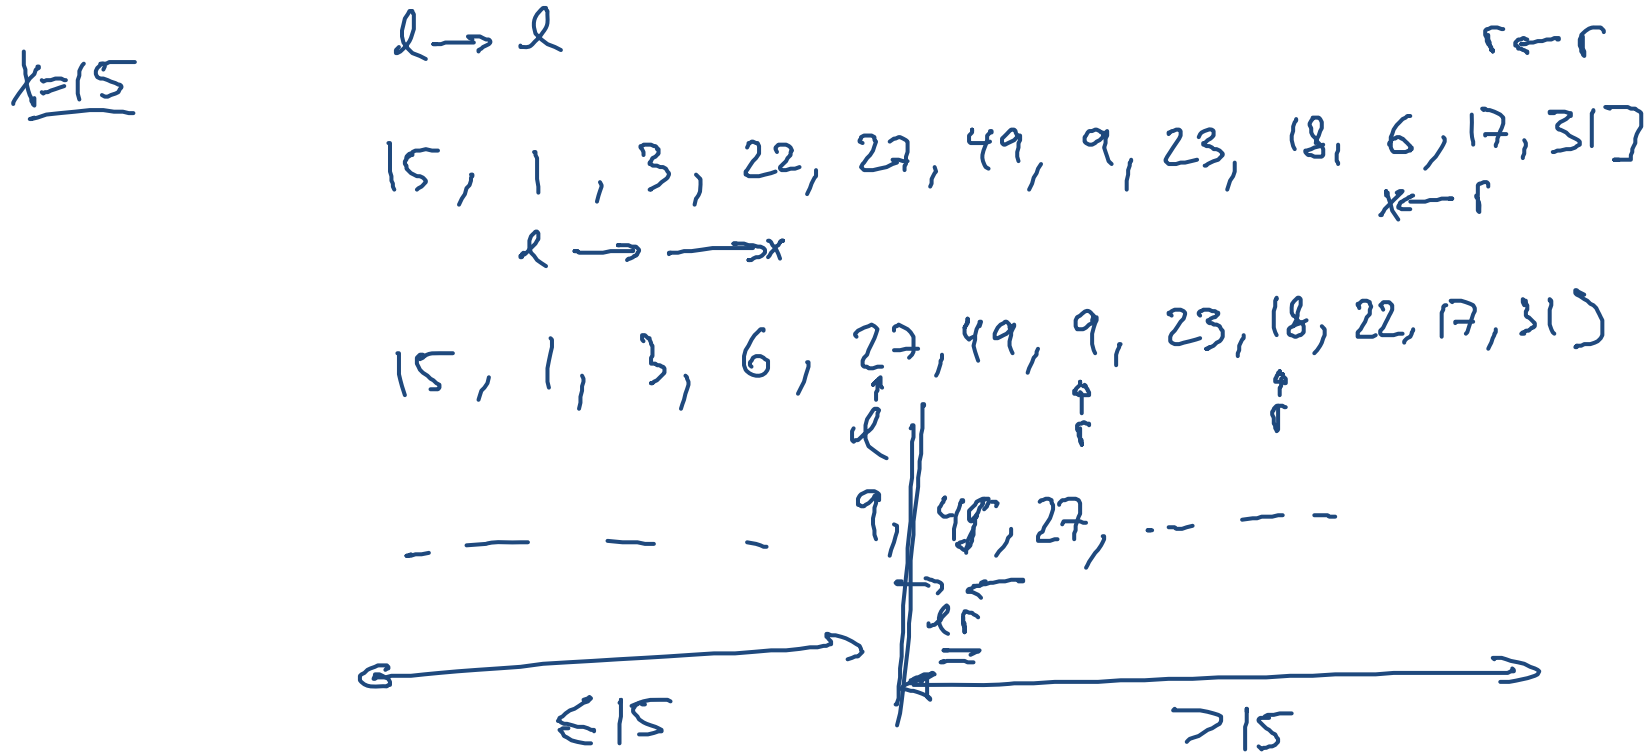 l → l r ← r
x=15
15, 1, 3, 22, 27, 49, 9, 23, 18, 6, 17, 31]
x ← r
l → → x
15, 1, 3, 6, 27, 49, 9, 23, 18, 22, 17, 31)
l r r
9, 49, 27, - - - -
l r
≤ 15 > 15